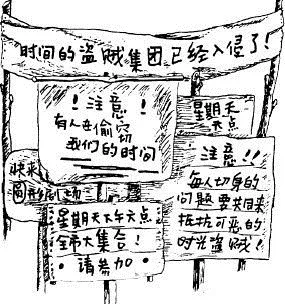 时间的盗贼集团已经入侵了!
!注意!
有人在偷窃
我们的时间
星期天
六点
快来
圆形剧场
注意!!
每人切身的
问题要共同来
抵抗可恶的
时光盗贼!
星期天下午六点
全市大集合!
·请参加·